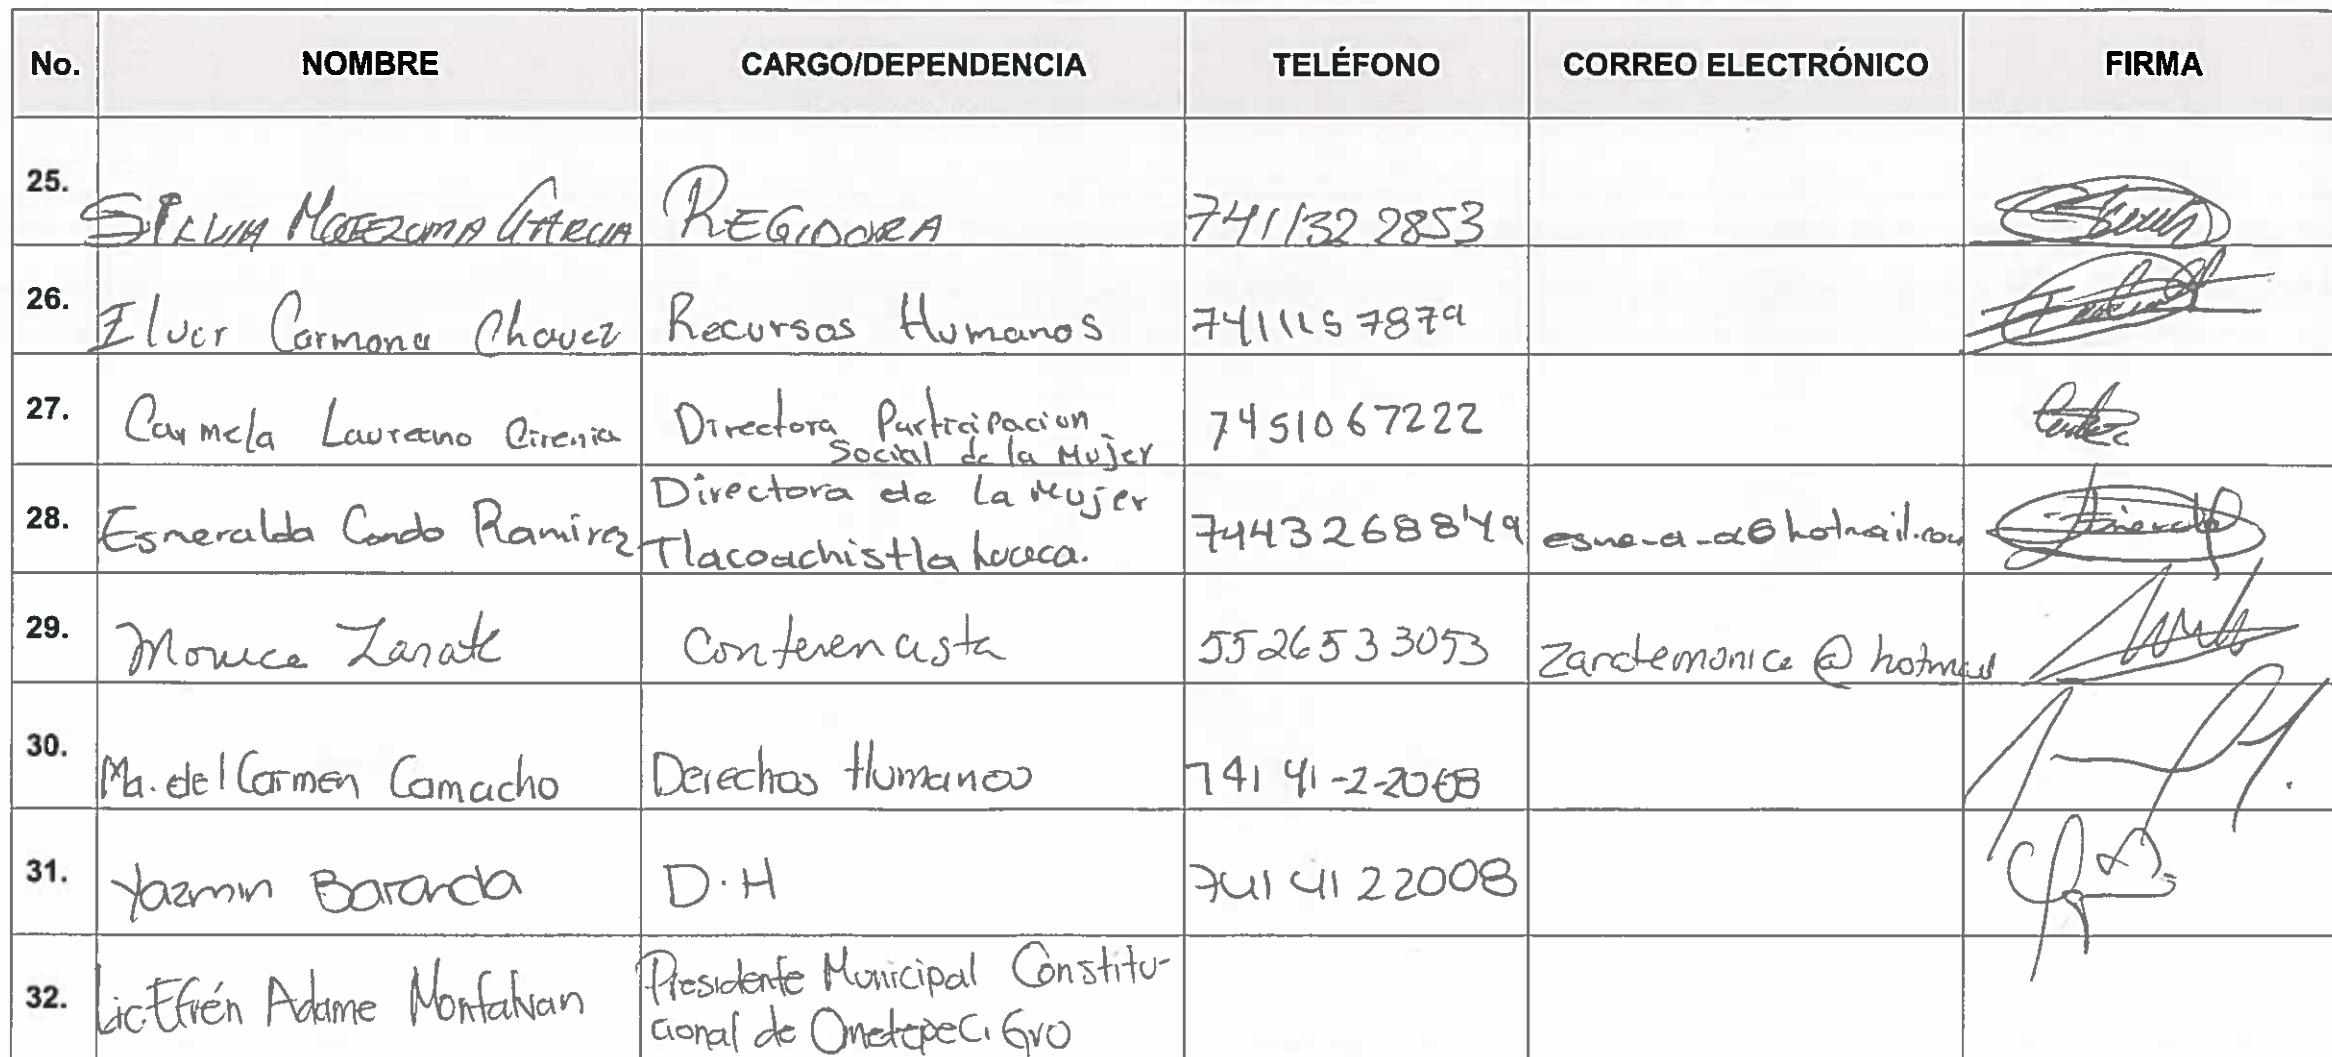 No. NOMBRE CARGO/DEPENDENCIA TELÉFONO CORREO ELECTRÓNICO FIRMA
25. SILVIA MOTEZUMA GARCIA REGIDORA 741/132 2853
26. Elver Carmona Chavez Recursos Humanos 7411157879
27. Carmela Laureano Cirenia Directora Participacion
Social de la Mujer 7451067222
28. Esmeralda Condo Ramirez Directora de la Mujer
Tlacoachistlahuaca. 7443268849
29. Monica Zarate Conferencista 5526533053 zaratemonica@hotmail
30. Ma. del Carmen Camacho Derechos Humanos 741 41-2-2008
31. Yazmin Baranda D.H 741 41 22008
32. Lic Efrén Adame Montalvan Presidente Municipal Constitu-
cional de Ometepec, Gro